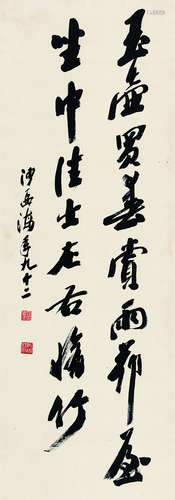 玉壶買春賞雨茆屋
坐中佳士左右脩竹
沙孟海年九十二